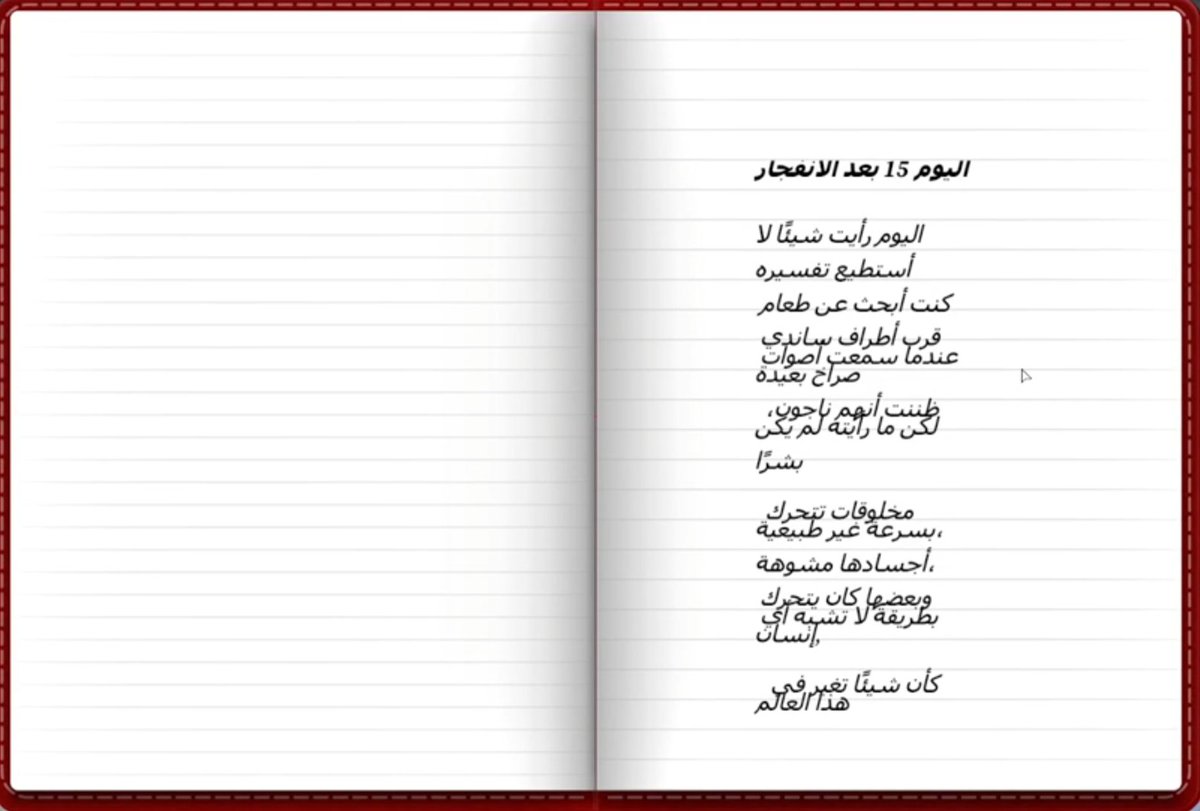 اليوم 15 بعد الانفجار
اليوم رأيت شيئًا لا
أستطيع تفسيره
كنت أبحث عن طعام
قرب أطراف ساندي
عندما سمعت أصوات
صراخ بعيدة
ظننت أنهم ناجون،
لكن ما رأيته لم يكن
بشرًا
مخلوقات تتحرك
،بسرعة غير طبيعية
،أجسادها مشوهة
وبعضها كان يتحرك
بطريقة لا تشبه أي
إنسان,
كأن شيئًا تغير في
هذا العالم